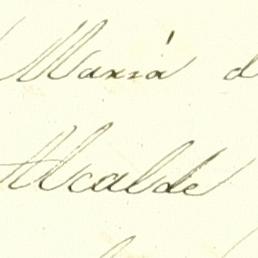 María d
Alcalde